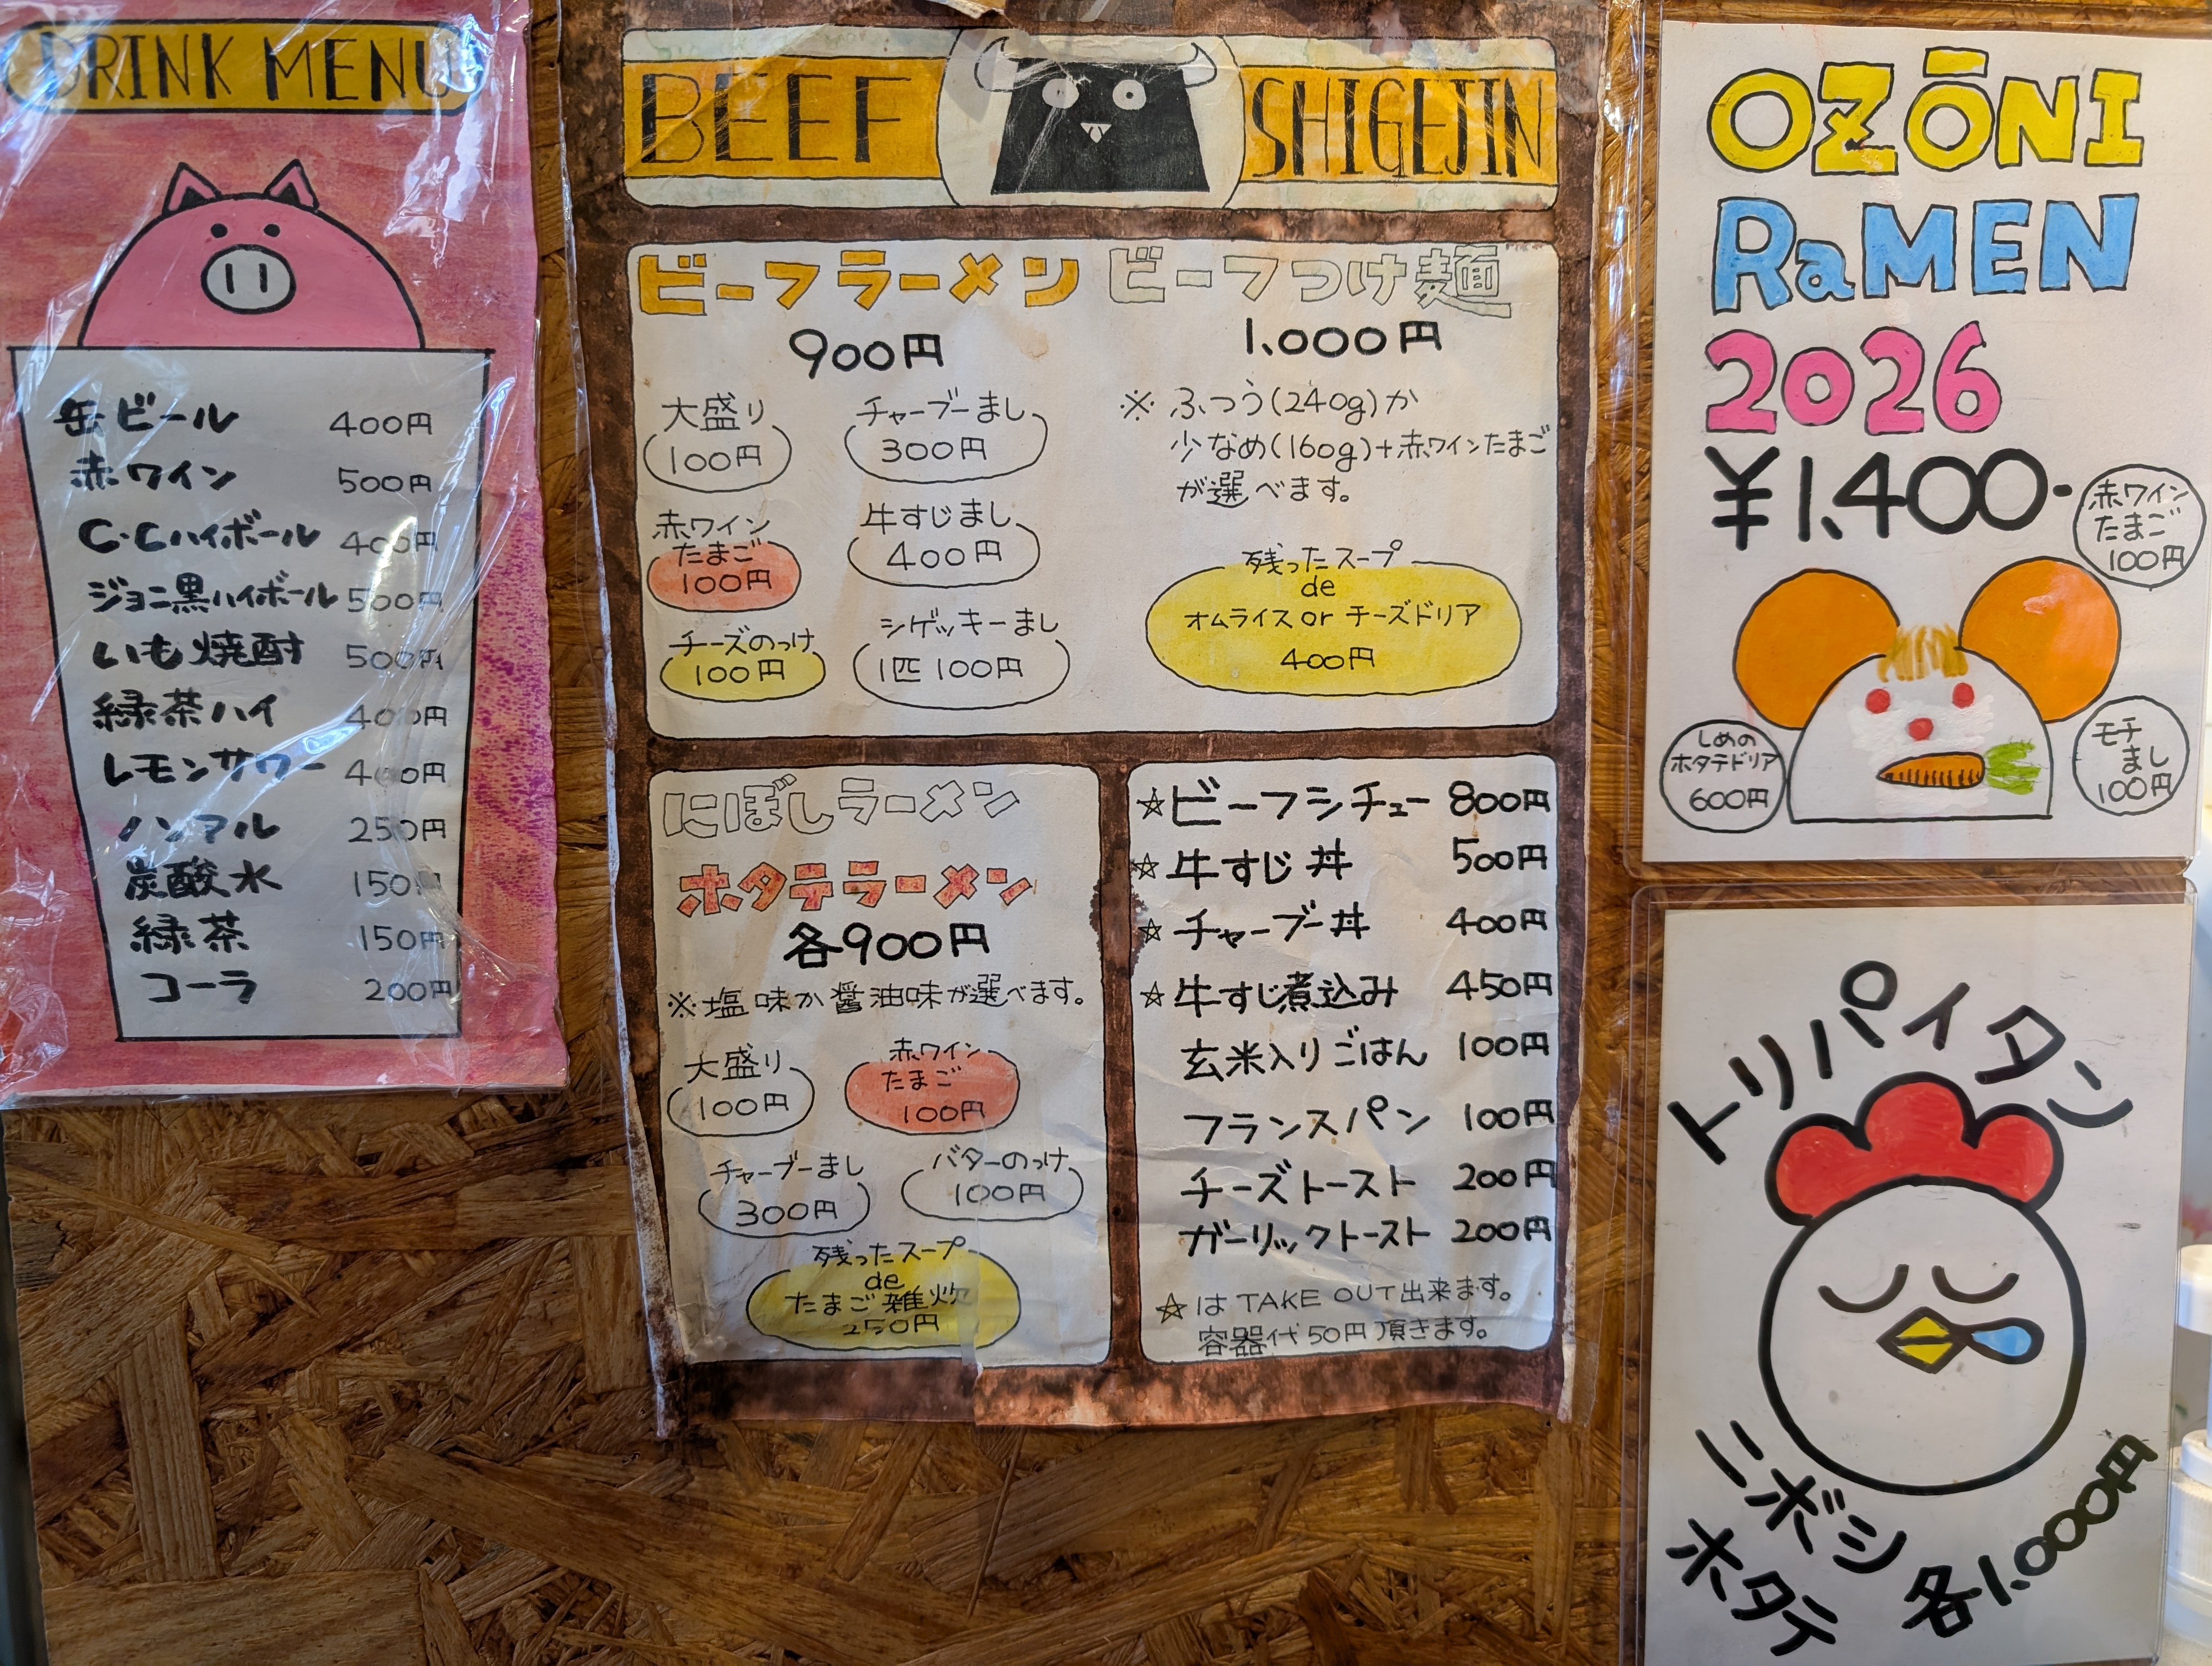 DRINK MENU
缶ビール 400円
赤ワイン 500円
C・Cハイボール 400円
ジョニ黒ハイボール 500円
いも焼酎 500円
緑茶ハイ 400円
レモンサワー 400円
ノンアル 250円
炭酸水 150円
緑茶 150円
コーラ 200円
BEEF SHIGEJIN
ビーフラーメン
900円
大盛り
100円
チャーブーまし
300円
赤ワイン
たまご
100円
牛すじまし
400円
チーズのっけ
100円
シゲッキーまし
1匹100円
ビーフつけ麺
1,000円
※ ふつう(240g)か
少なめ(160g)+赤ワインたまご
が選べます。
残ったスープ
de
オムライス or チーズドリア
400円
にぼしラーメン
ホタテラーメン
各900円
※塩味か醤油味が選べます。
大盛り
100円
赤ワイン
たまご
100円
チャーブーまし
300円
バターのっけ
100円
残ったスープ
de
たまご雑炊
250円
☆ビーフシチュー 800円
☆牛すじ丼 500円
☆チャーブー丼 400円
☆牛すじ煮込み 450円
玄米入りごはん 100円
フランスパン 100円
チーズトースト 200円
ガーリックトースト 200円
☆は TAKE OUT出来ます。
容器代50円頂きます。
OZŌNI
RaMEN
2026
¥1,400-
赤ワイン
たまご
100円
しめの
ホタテドリア
600円
モチ
まし
100円
トリパイタン
ニボシ
ホタテ
各1,000円